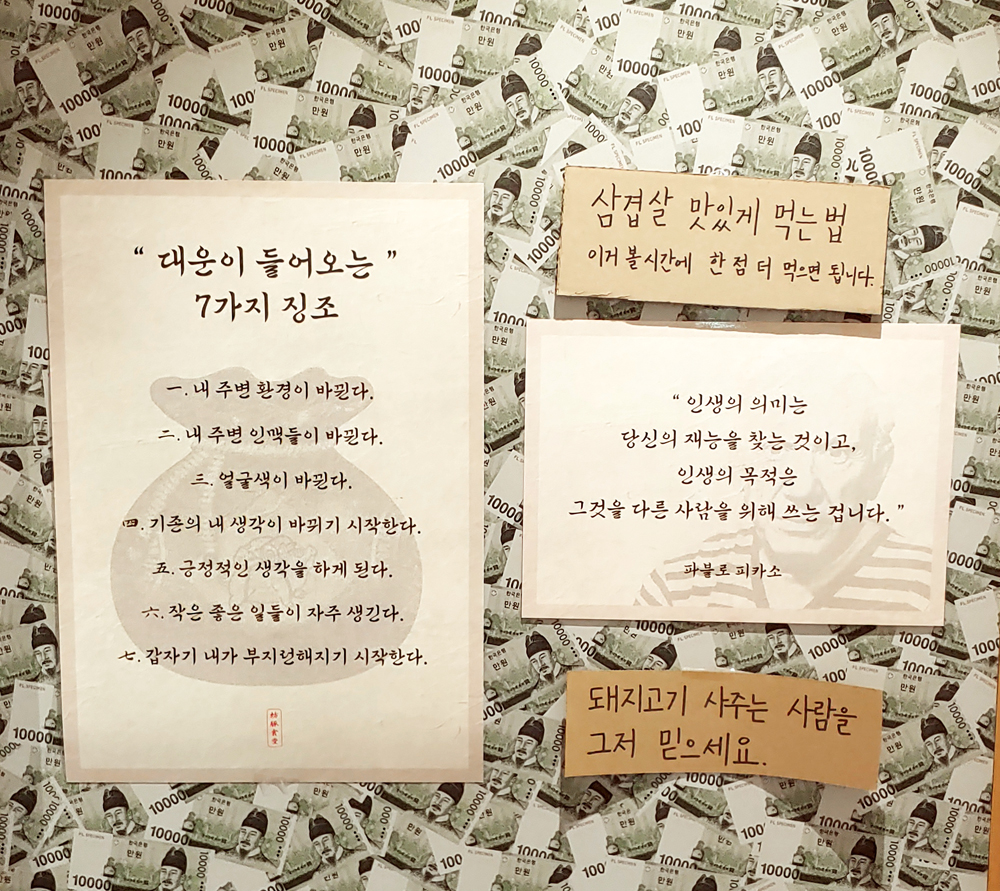 “ 대운이 들어오는 ”
7가지 징조
一. 내 주변 환경이 바뀐다.
二. 내 주변 인맥들이 바뀐다.
三. 얼굴색이 바뀐다.
四. 기존의 내 생각이 바뀌기 시작한다.
五. 긍정적인 생각을 하게 된다.
六. 작은 좋은 일들이 자주 생긴다.
七. 갑자기 내가 부지런해지기 시작한다.
삼겹살 맛있게 먹는법
이거 볼시간에 한 점 더 먹으면 됩니다.
“ 인생의 의미는
당신의 재능을 찾는 것이고,
인생의 목적은
그것을 다른 사람을 위해 쓰는 겁니다. ”
파블로 피카소
돼지고기 사주는 사람을
그저 믿으세요.
한국은행
만원
10000
FL SPECIMEN